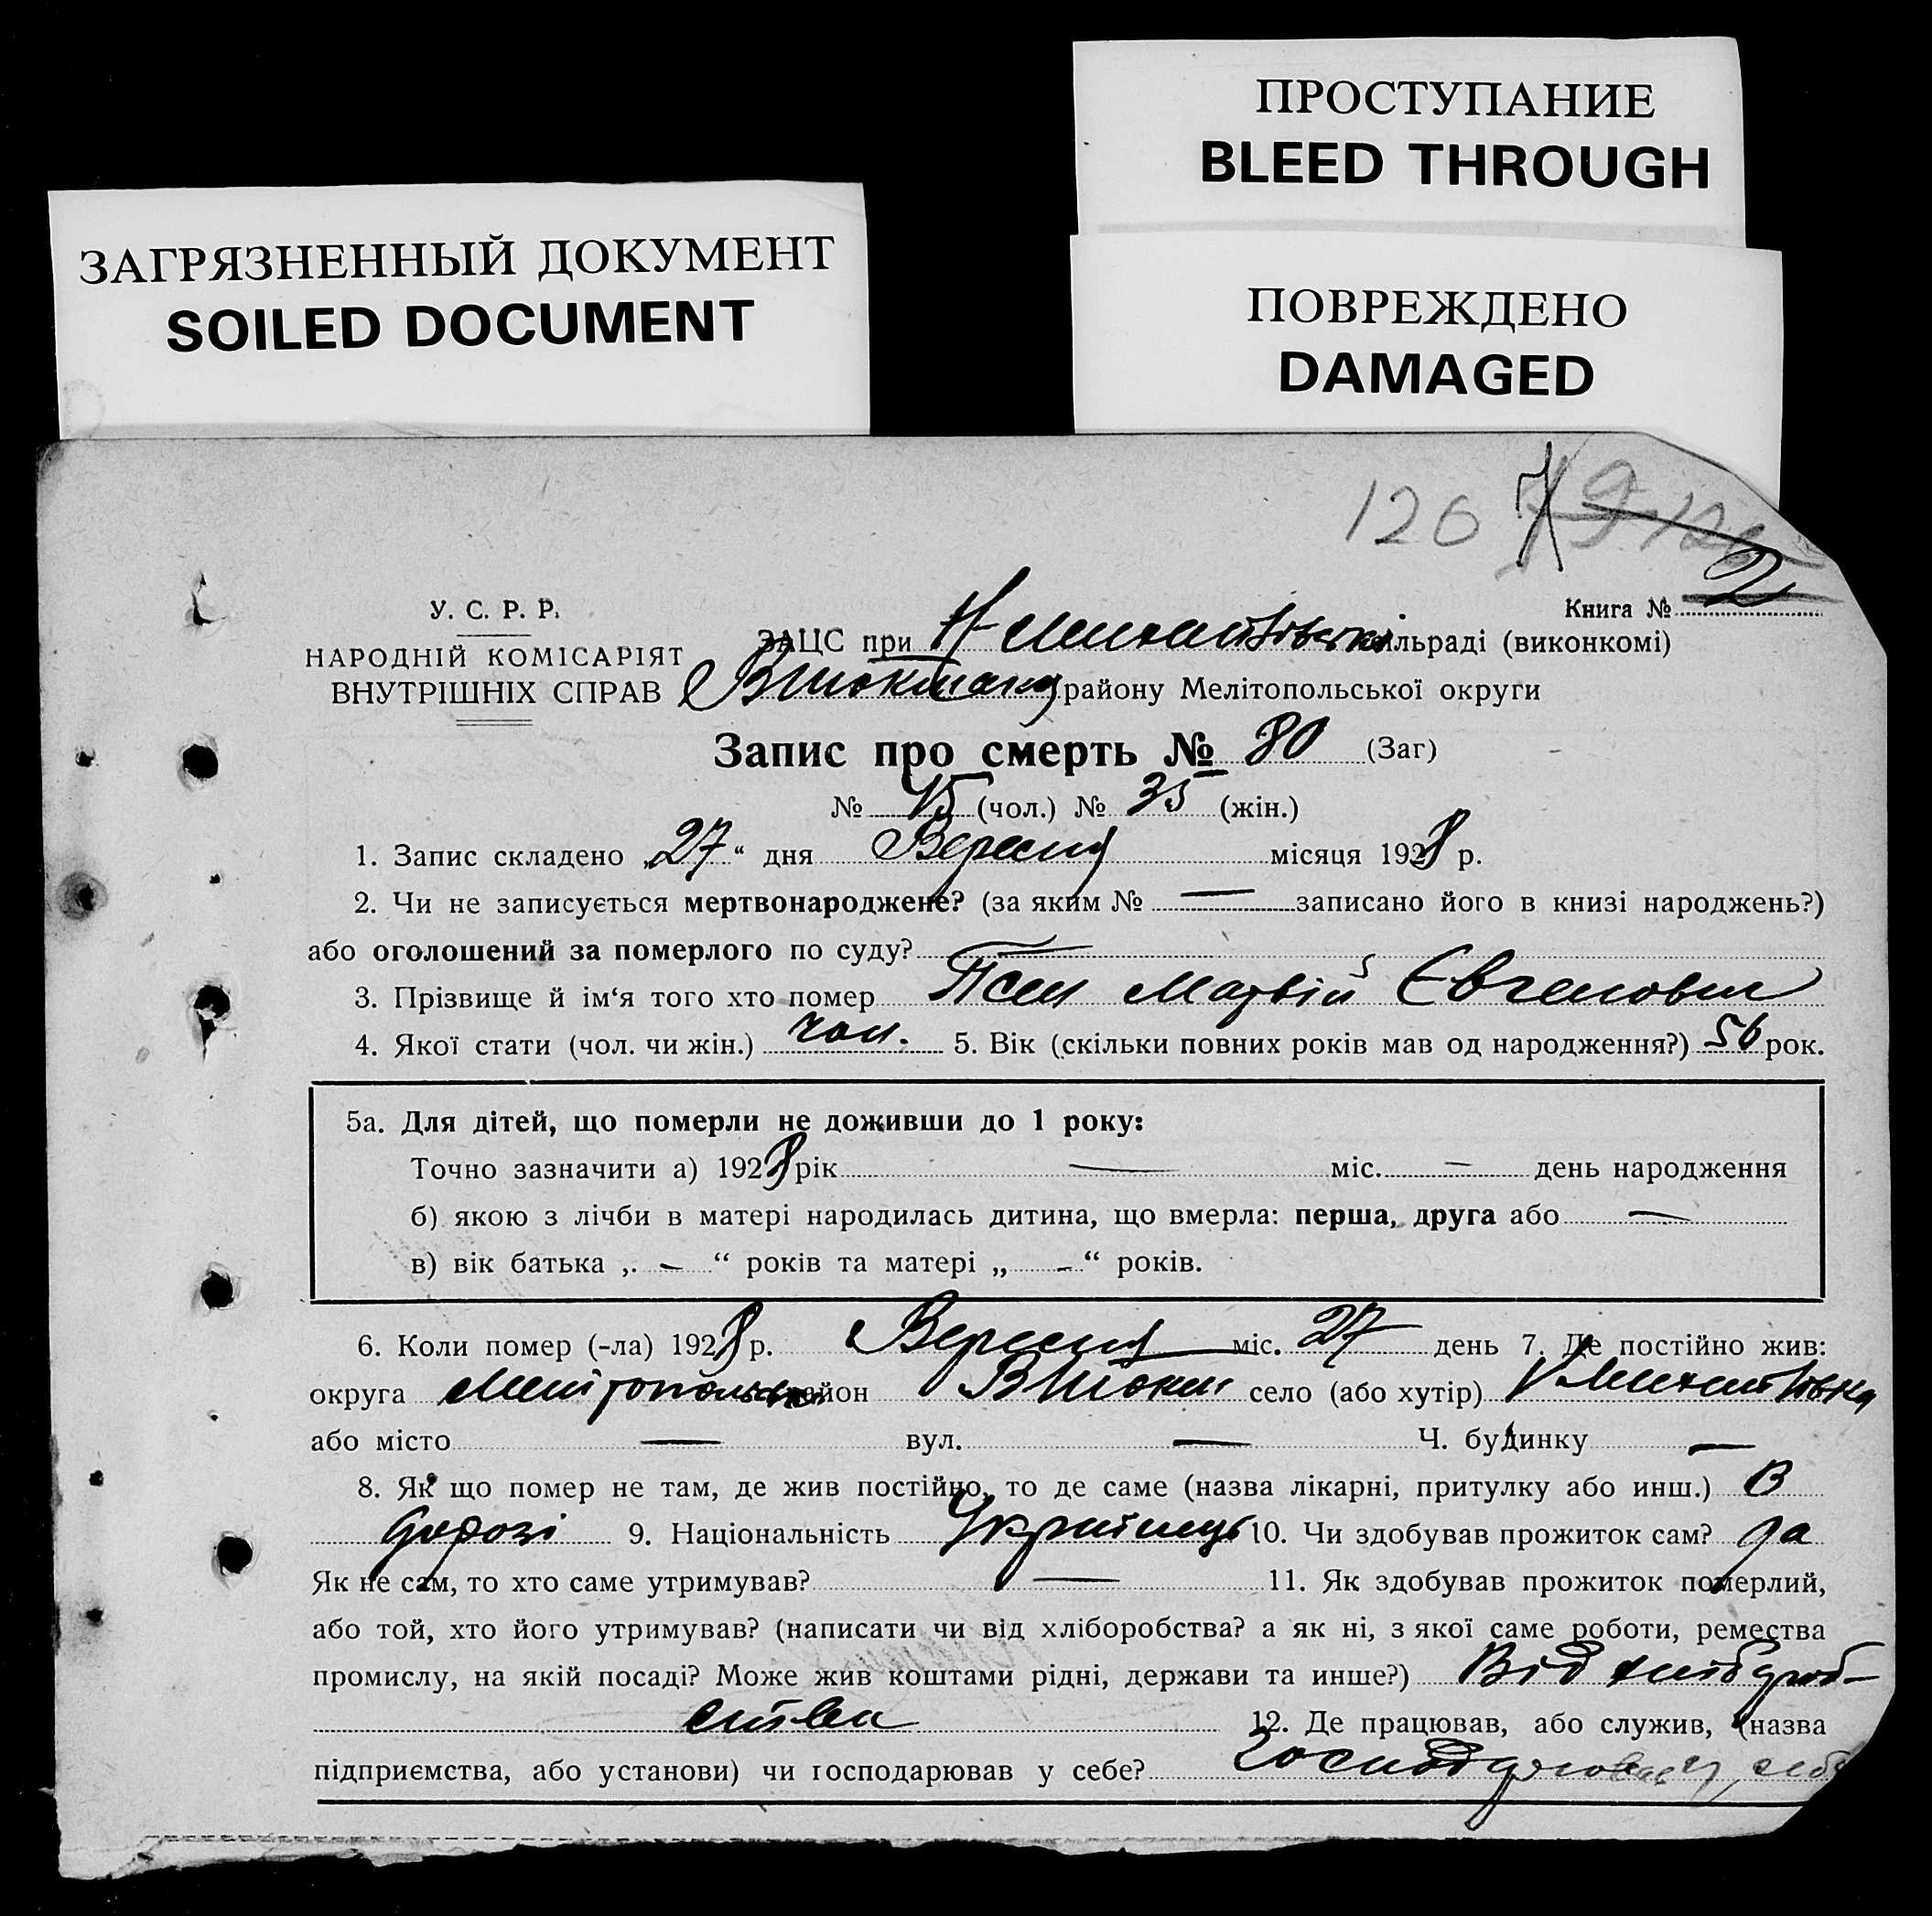 ПРОСТУПАНИЕ
BLEED THROUGH
ЗАГРЯЗНЕННЫЙ ДОКУМЕНТ
SOILED DOCUMENT
ПОВРЕЖДЕНО
DAMAGED
120
Книга № 2
У. С. Р. Р.
НАРОДНІЙ КОМІСАРІЯТ
ВНУТРІШНІХ СПРАВ
ЗАЦС при Н Михайлівській сільраді (виконкомі)
ВТокмакц району Мелітопольської округи
Запис про смерть № 80 (Заг)
№ 45 (чол.) № 35 (жін.)
1. Запис складено „27“ дня Вересня місяця 1928 р.
2. Чи не записується мертвонароджене? (за яким № — записано його в книзі народжень?)
або оголошений за померлого по суду? —
3. Прізвище й ім‘я того хто помер Псел Матвій Євгенович
4. Якої стати (чол. чи жін.) чол. 5. Вік (скільки повних років мав од народження?) 56 рок.
5а. Для дітей, що померли не доживши до 1 року:
Точно зазначити а) 1928 рік — міс. — день народження
б) якою з лічби в матері народилась дитина, що вмерла: перша, друга або —
в) вік батька „ — “ років та матері „ - “ років.
6. Коли помер (-ла) 1928 р. Вересня міс. 27 день 7. Де постійно жив:
округа Мелітопольськ район ВТокм село (або хутір) Н Михайлівка
або місто — вул. — Ч. будинку —
8. Як що помер не там, де жив постійно, то де саме (назва лікарні, притулку або инш.) в
дорозі 9. Національність Українець 10. Чи здобував прожиток сам? да
Як не сам, то хто саме утримував? — 11. Як здобував прожиток померлий,
або той, хто його утримував? (написати чи від хліборобства? а як ні, з якої саме роботи, ремества
промислу, на якій посаді? Може жив коштами рідні, держави та инше?) Від хлібороб-
ства 12. Де працював, або служив, (назва
підприємства, або установи) чи господарював у себе? господарював у себе